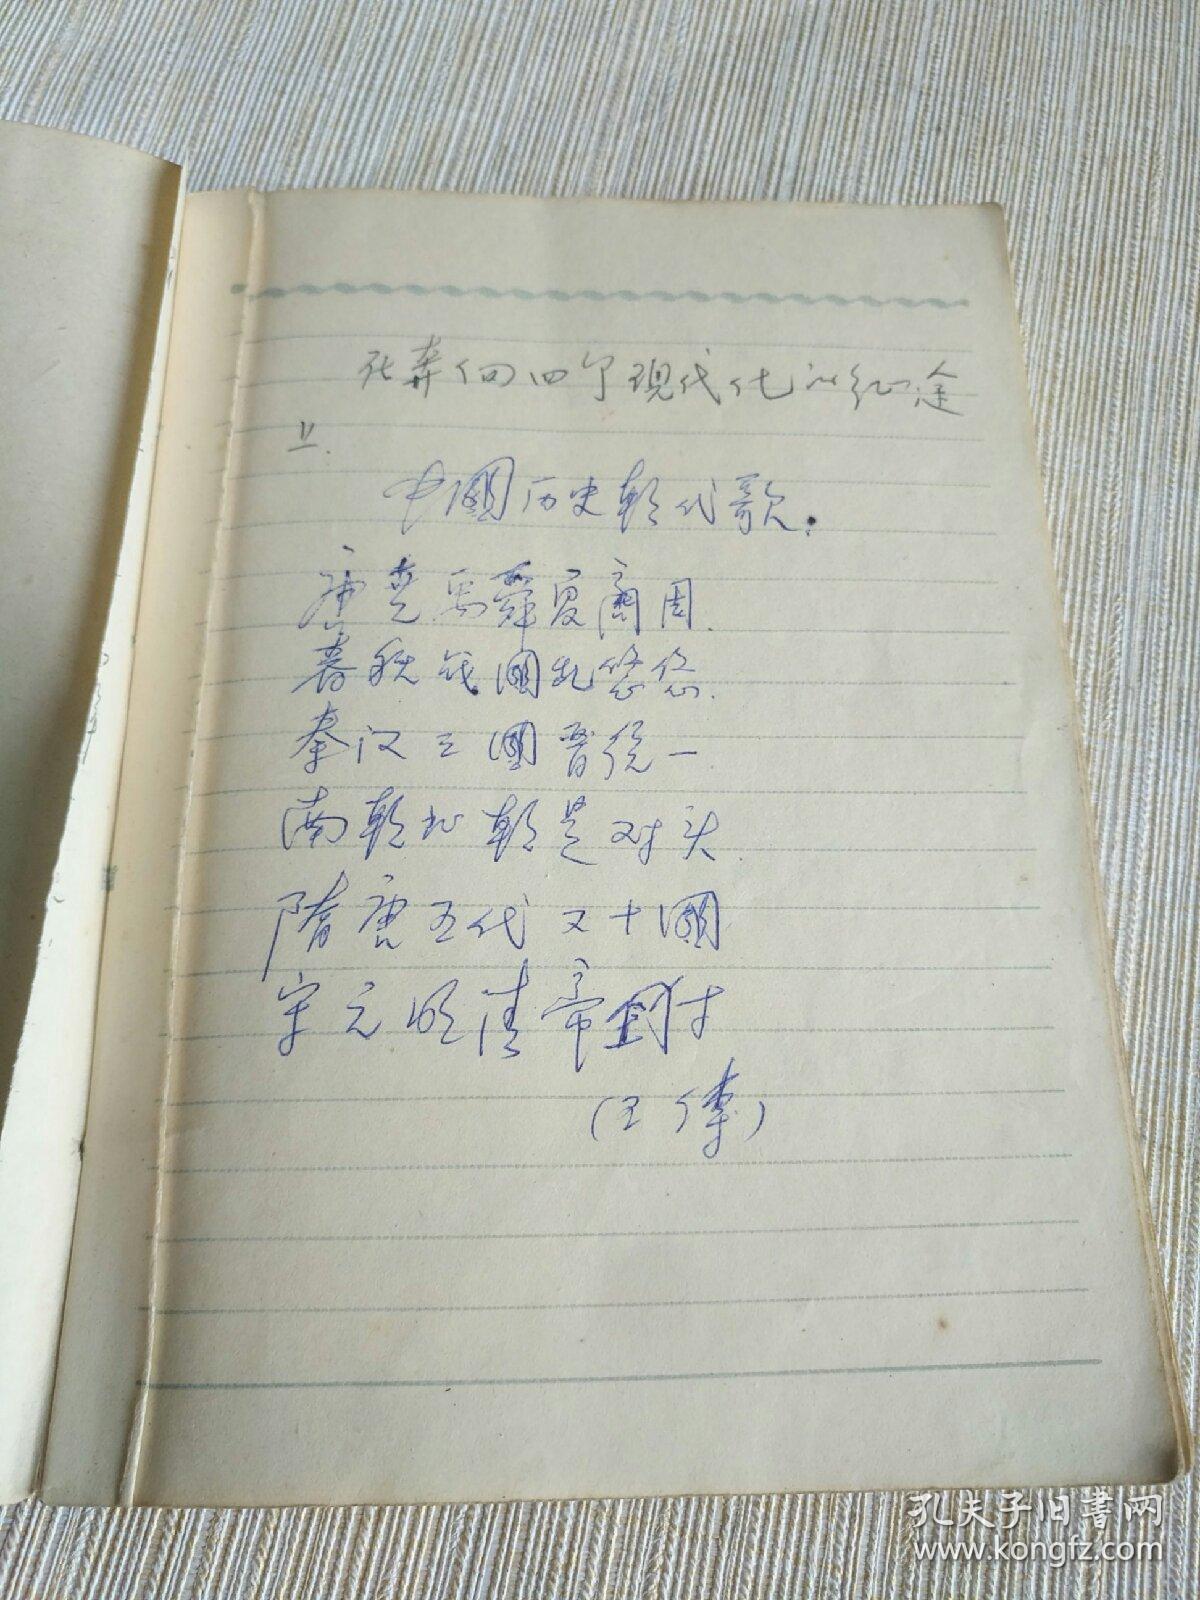 在奔向四个现代化的征途
上.
中國历史朝代歌.
唐尧禹舜夏商周.
春秋战國乱悠悠.
秦汉三國晋统一.
南朝北朝是对头.
隋唐五代又十國
宋元明清帝
(王傳)
孔夫子旧書网
www.kongfz.com